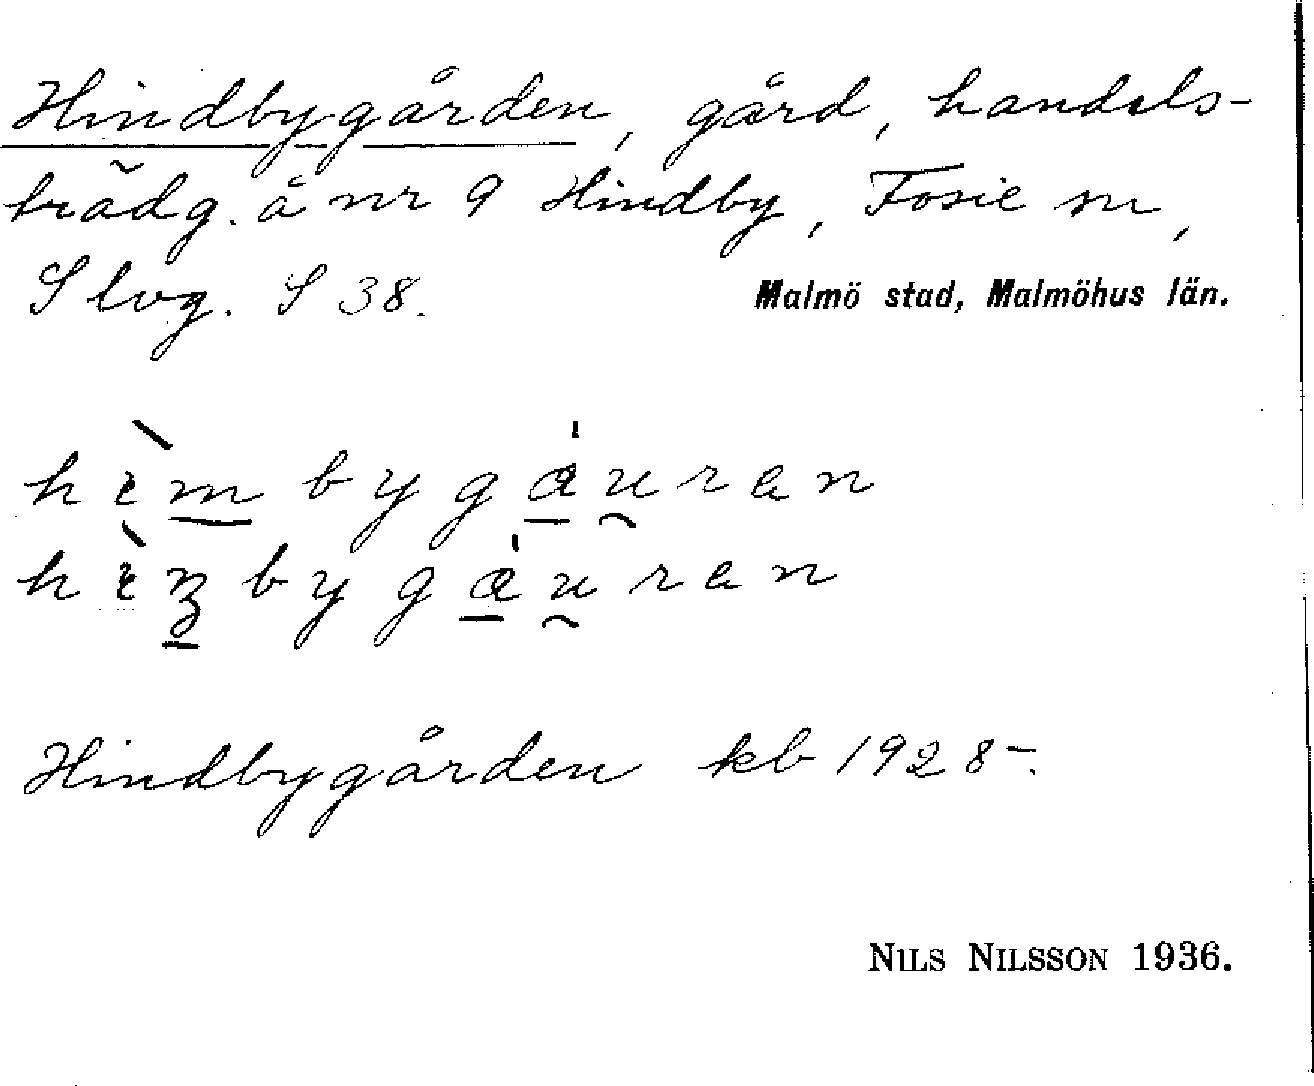 Hindbygården, gård, handels-
trädg. å nr 9 Hindby, Fosie sn,
S lvg. S 38.
Malmö stad, Malmöhus län.
hèmbygáuran
hènbygáuran
Hindbygården kb 1928-.
NILS NILSSON 1936.